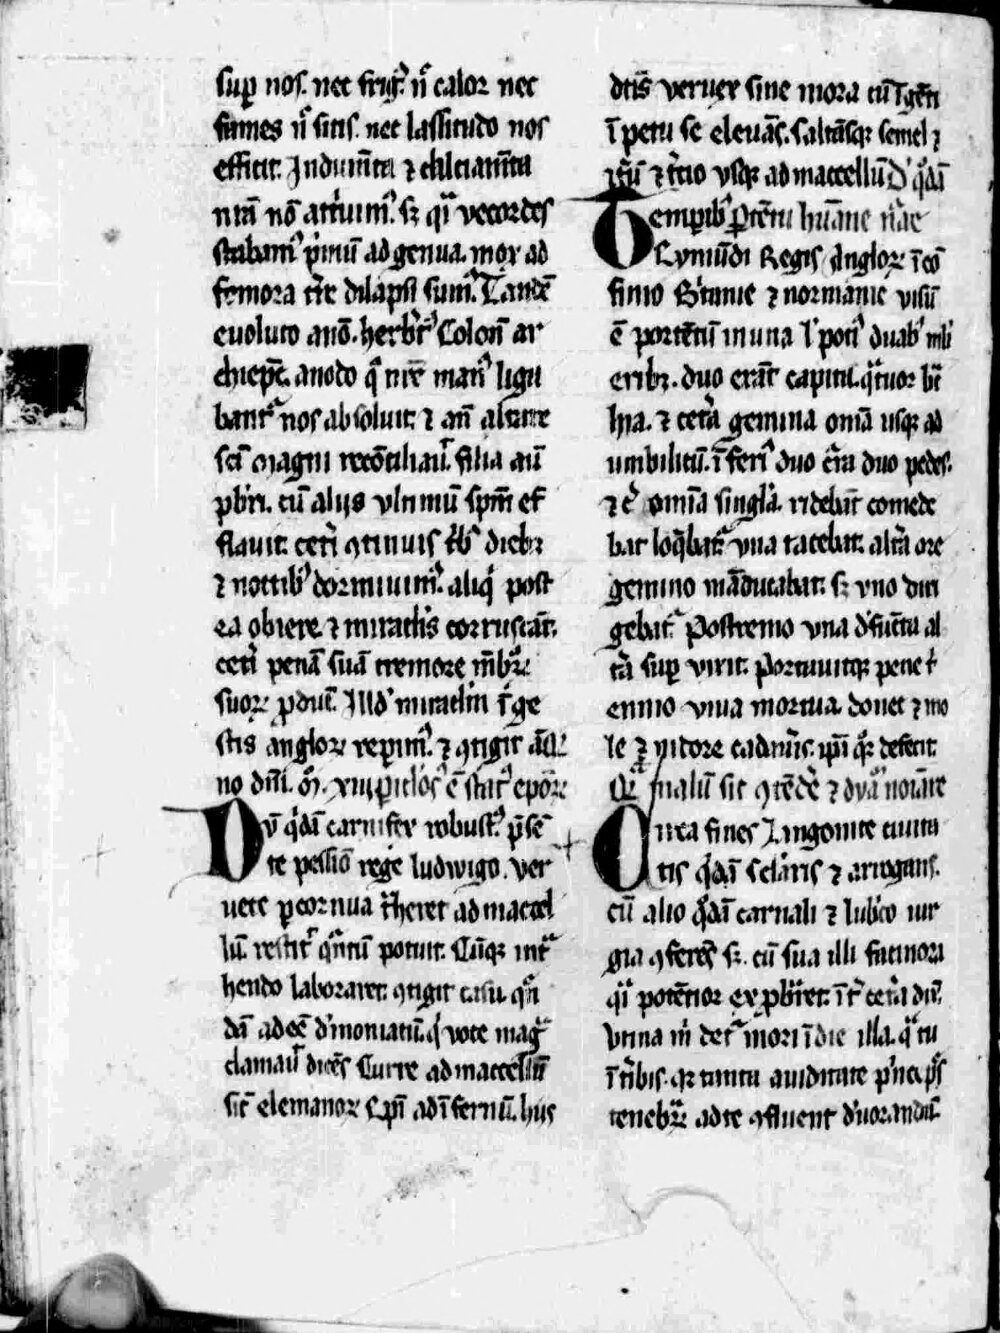 sup nos. nec frig᷑ n̄ calor nec
fames n̄ sitis. nec lassitudo nos
effecit. Indum̄ta ⁊ calciam̄ta
nr̄a nō attriuim᷒. sꝫ qͣ vecordes
stabam᷒ p̄mū ad genua. mox ad
femora t̄re dilapsi sum᷒. Tandē
euoluto anō. herb̄t᷒ Colon̄ ar
chiep̄c. anodo q̄ nr̄e man᷒ liga
bant᷑ nos absoluit. ⁊ an̄ altare
sc̄i Magni recōciliauͭ. filia aū
pb̄ri. cū alijs vltimū sp̄m ef
flauit. cet̄i ꝯtinuis tb᷒ diebꝫ
⁊ noctib᷒ dormiuim᷒. aliq̄ post
ea obiere. ⁊ miraclis corruscāt.
cet̄i penā suā tremore mēbꝝ
suoꝝ pdūt. Illd᷒ miraclm̄ ī ge
stis angloꝝ repim᷒. ⁊ ꝯtigit
no dn̄i. M̄. xiij
Dv̄ q̄dā carnifex robust᷒ p̄sē
te pessio rege ludwigo. ver
uece p cornua t̄heret ad macel
lū. restit᷑ qͣntū potuit. Cūqꝫ int᷑
hendo laboraret. ꝯtigit casu. qͣn
dā adeē d̓moniacū. q᷒ voce magͣ
clamauͭ dicēs Curre ad macellū
sic̄ elemanoꝝ ep̄i ad īfernū. hijs
dictis veruex sine mora cū īgēti
īpetu se eleuās. saltāsqꝫ semel ⁊
⁊ t̄cio vsqꝫ ad macellū
Tempib᷒ portētū humāne n̄ae
Lymūdi Regis Angloꝝ ī cō
finio B̄tanie ⁊ normanie visū
ē portētū in una l᷒ poti᷒ duab᷒ mli
eribꝫ. duo erāt capita. qͣtuor b̄
hia. ⁊ cet̄a gemina om̄ia usqꝫ ad
umbilicū. īferi᷒ duo c̄ra duo pedes.
⁊ c̄ om̄ia singla. ridebat comede
bat loq̄bat᷑ vna tacebat. alt̄a ore
gemino māducabat. sꝫ vno dici
gebat᷑. Postremo vna d̓fucta al
t̄a sup vixit. Portauitqꝫ pene t͛
ennio viua mortua. donec ⁊ mo
le ⁊ nidore cadau͛is. ip̄a qͦꝫ defecit
Circa fines Lingonice ciuita
tis q̄dā sclaris ⁊ arrogans.
cū alio q̄dā carnali ⁊ lubico iur
gia ꝯferēs sꝫ. cū sua illi facinora
qͣ potētior exprobraret. īt̄ cet̄a dix.
Vtina m̄ det᷑ mori ī die illa. qͣ tu
ī t̄bis. qꝛ tanta auiditate p̄ncipēs
tenebꝝ ad te ꝯfluent d̓uorandū.